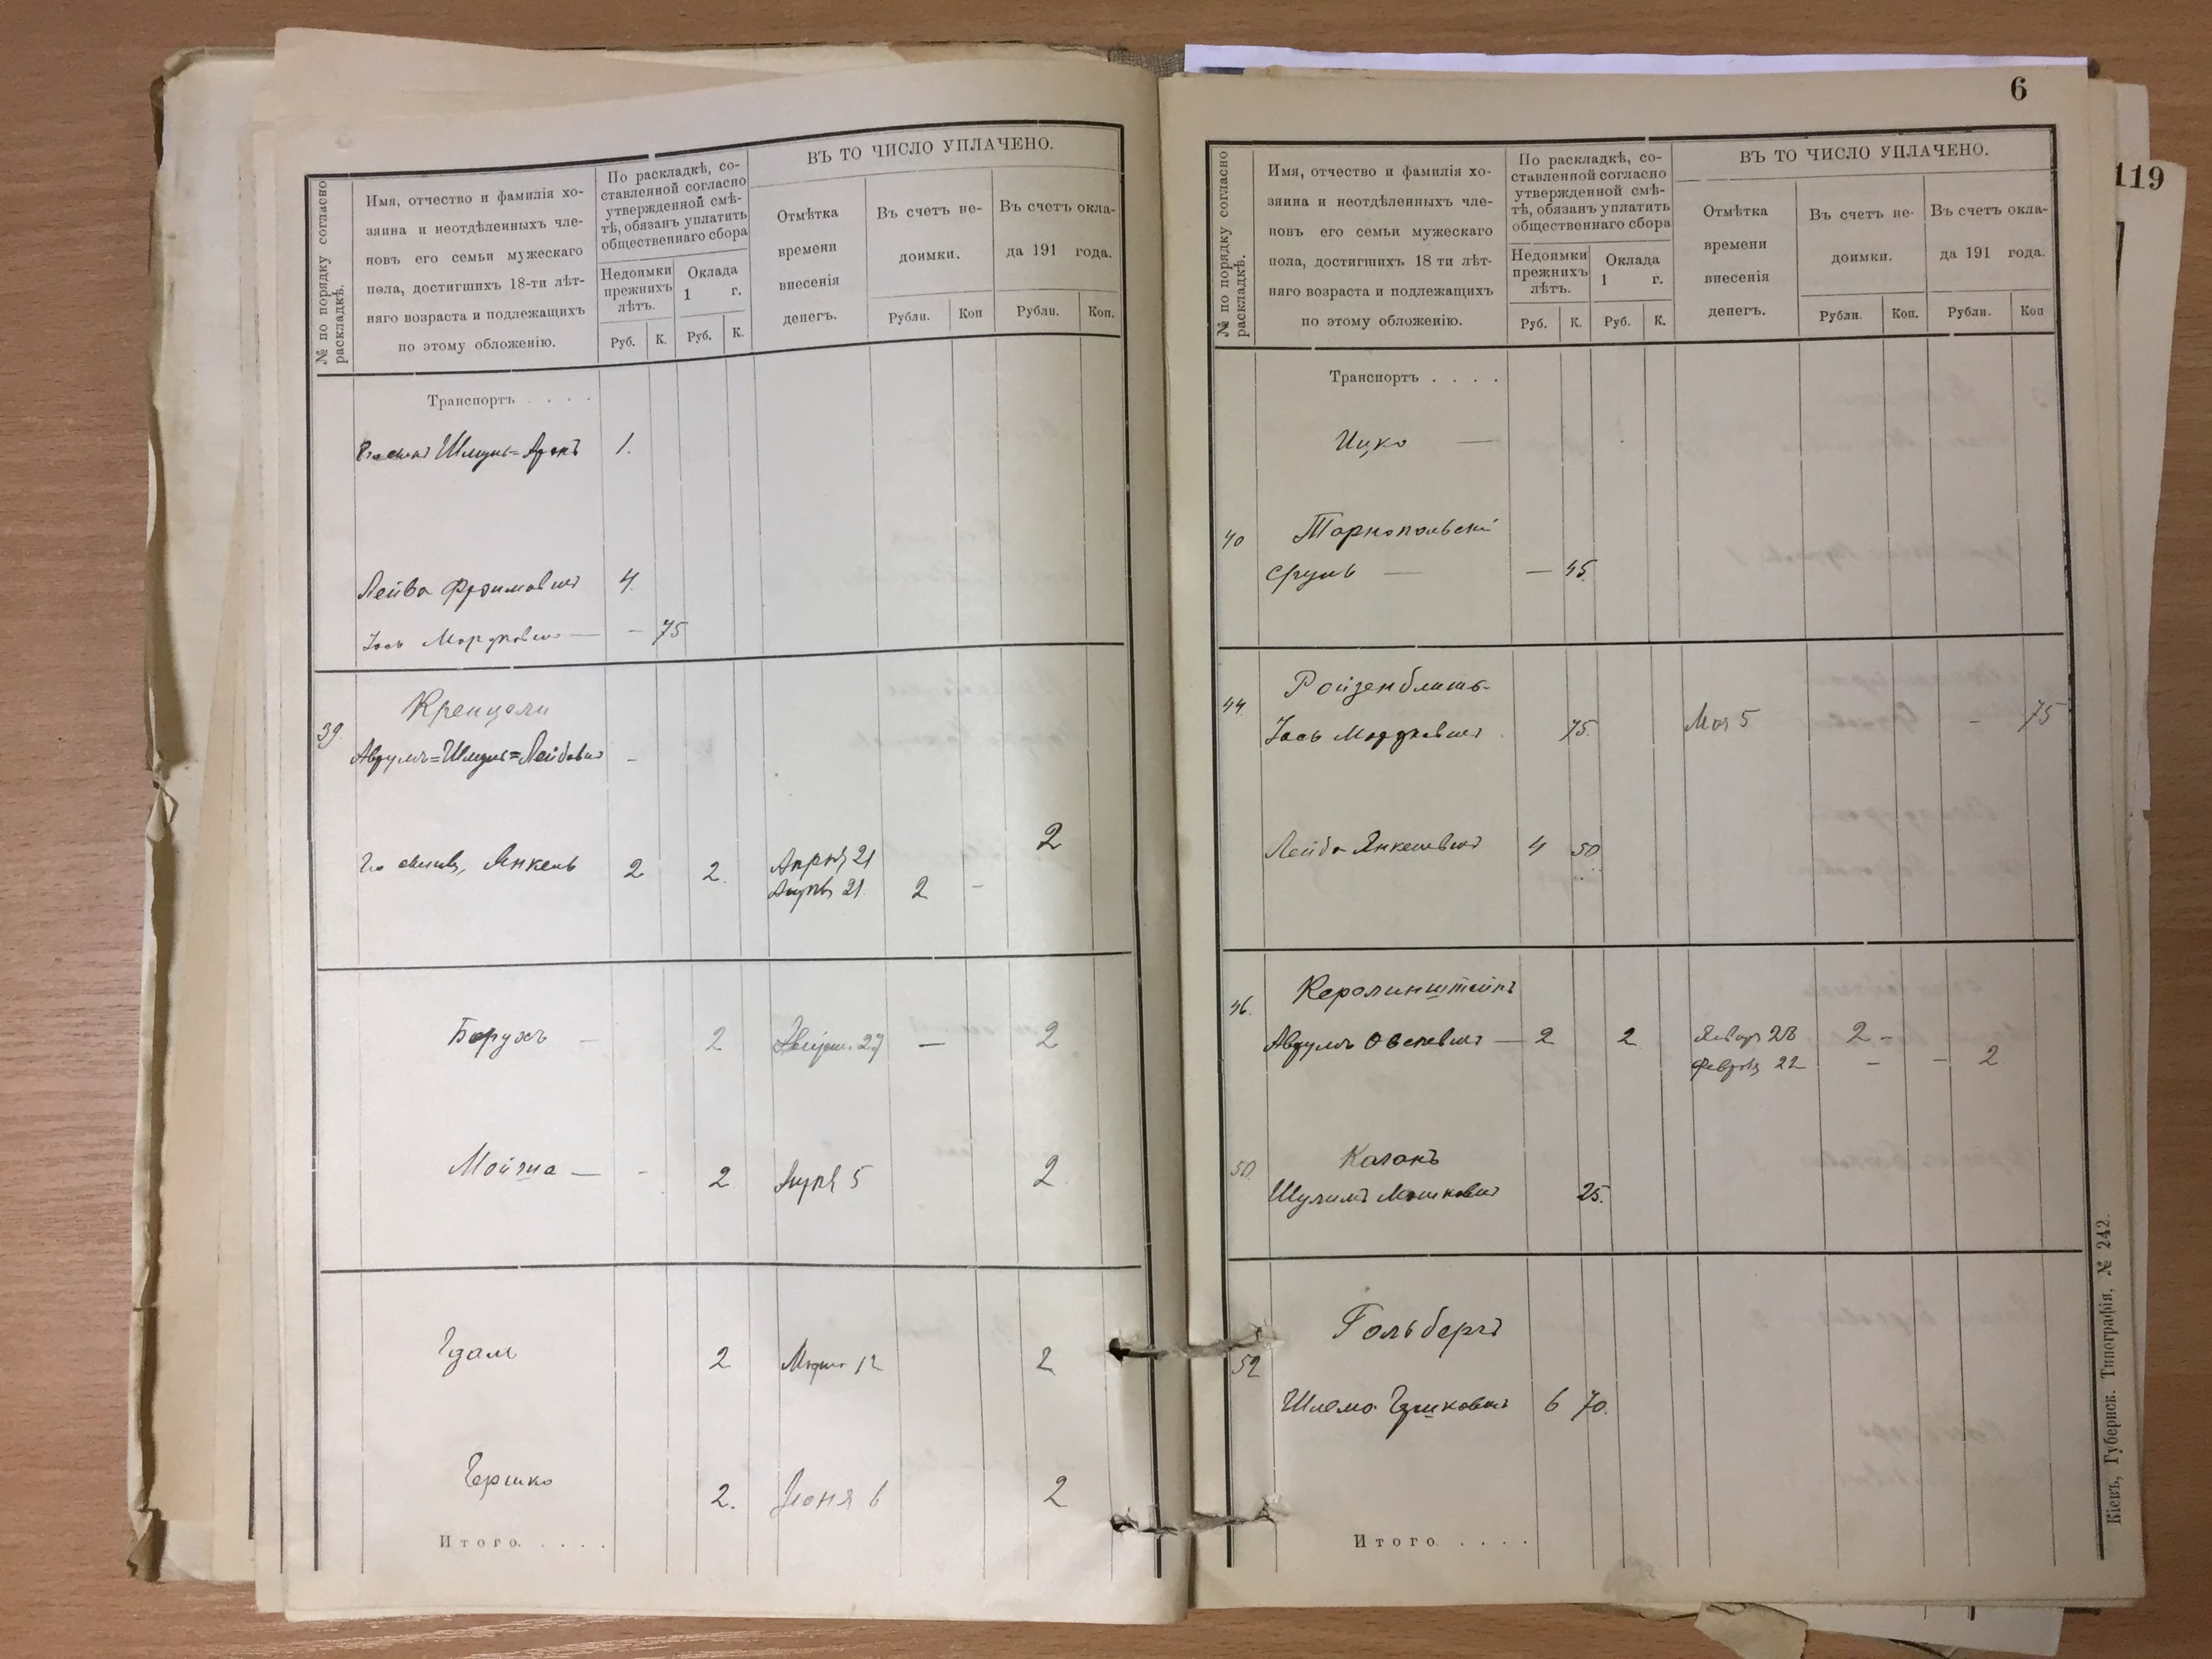 № по порядку согласно
раскладкѣ.
Имя, отчество и фамилія хо-
зяина и неотдѣленныхъ чле-
новъ его семьи мужескаго
пола, достигшихъ 18-ти лѣт-
няго возраста и подлежащихъ
по этому обложенію.
По раскладкѣ, со-
ставленной согласно
утвержденной смѣ-
тѣ, обязанъ уплатить
общественнаго сбора
Недоимки
прежнихъ
лѣтъ.
Оклада
1 г.
Руб. К. Руб. К.
ВЪ ТО ЧИСЛО УПЛАЧЕНО.
Отмѣтка
времени
внесенія
денегъ.
Въ счетъ не-
доимки.
Въ счетъ окла-
да 191 года.
Рубли. Коп Рубли. Коп.
Транспортъ . . . .
Шмуль= 1.
Лейба Фроимовичъ 4.
Іось Мордковичъ — - 75
39. Кренцели
Аврумъ=Шмуль=Лейбовичъ -
Янкель 2 2. Апрѣ 21 2
Апрѣ 21. 2 -
Борухъ - 2 27 — 2
Мойша — - 2 Апрѣ 5 2
2 Март 12 2
Гершко 2. Іюня 6 2
Итого. . . . .
6
119
№ по порядку согласно
раскладкѣ.
Имя, отчество и фамилія хо-
зяина и неотдѣленныхъ чле-
новъ его семьи мужескаго
пола, достигшихъ 18 ти лѣт-
няго возраста и подлежащихъ
по этому обложенію.
По раскладкѣ, со-
ставленной согласно
утвержденной смѣ-
тѣ, обязанъ уплатить
общественнаго сбора
Недоимки
прежнихъ
лѣтъ.
Оклада
1 г.
Руб. К. Руб. К.
ВЪ ТО ЧИСЛО УПЛАЧЕНО.
Отмѣтка
времени
внесенія
денегъ.
Въ счетъ не-
доимки.
Въ счетъ окла-
да 191 года.
Рубли. Коп. Рубли. Коп
Транспортъ . . . .
Ицко —
40 Тарнопольскій
Сруль — — 45.
44. Ройзенблитъ
Іось Мордковичъ 75. Мая 5 - 75
Лейба Янкелевичъ 4 50
46. Керолинштейнъ
Аврумъ Овсеевичъ — 2 2 Январ 28 2 -
Февраля 22 - - 2
50. Каганъ
Шулимъ Мошковичъ 25.
52 Гольбергъ
Шлема Гершковичъ 6 70.
Итого . . . .
Кіевъ, Губернск. Типографія, № 242.